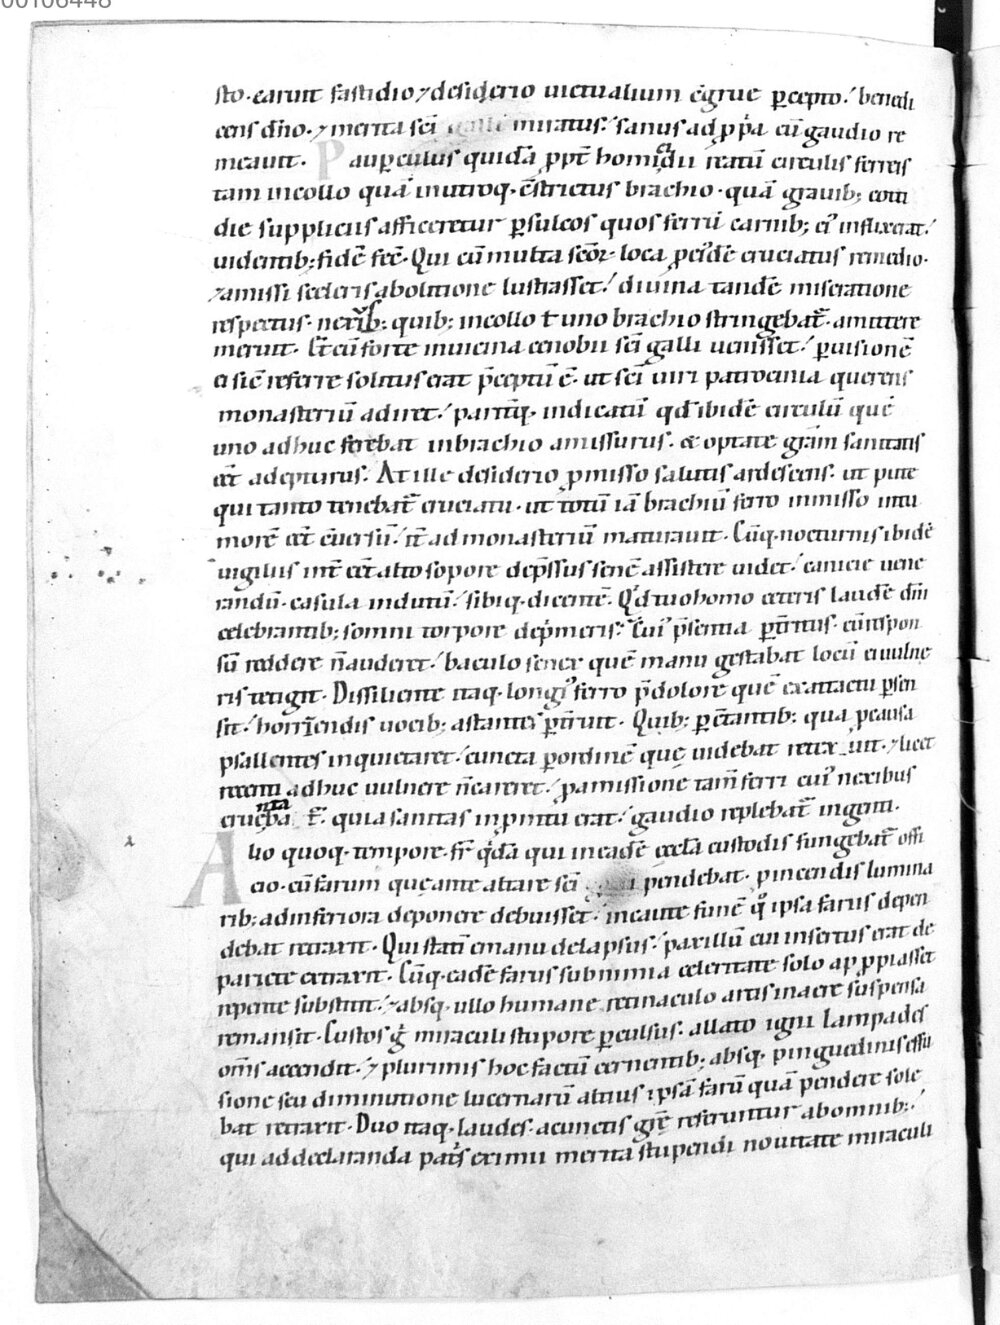 00106448
sto. caruit fastidio ⁊ desiderio uictualium c̄grue ꝑcepto. benedi
cens dn̄o. ⁊ merita sc̄i galli miratus. sanus ad ꝓpͥa cū gaudio re
meauit. Pauꝑculus quidā ꝓpt̄ homicidii reatū circulis ferreis
tam in collo quā in utroq; c̄strictus brachio. quā grauib; coti
die suppliciis afficeretur ꝑ sulcos quos ferrū carnib; ei inflixerat.
uidentib; fidē fec̄. Qui cū multa sc̄oꝝ loca ꝓ eidē cruciatus remedio.
⁊ amissi sceleris abolitione lustrasset. diuina tandē miseratione
respectus. nexib; quib; in collo ⁊ uno brachio stringebat̄. amittere
meruit. It̄ cū forte in uicina cenobii sc̄i galli uenisset. ꝑ uisionē
ei sic̄ referre solitus erat p̄ceptū ē. ut sc̄i uiri patrocinia querens
monasteriū adiret. paritq; indicatū qd̄ ibidē circulū quē
uno adhuc ferebat in brachio amissurus. & optate grām sanitatis
eēt adepturus. At ille desiderio ꝓmisso salutis ardescens. ut pute
qui tanto tenebat̄ cruciatu. ut totū iā brachiū ferro inmisso in tu
morē eēt c̄uersū. it̄ ad monasteriū maturauit. Cūq; nocturnis ibidē
uigiliis int̄ eēt alto sopore dep̄ssus senē assistere uidet. canicie uene
randū. casula indutū. sibiq; dicentē. Qd̄ tu o homo ceteris laudē dn̄i
celebrantib; somni torpore dep̄meris. Cui p̄sentia ꝑt̄ritus. cū respon
sū reddere n̄ auderet. baculo senex quē manu gestabat locū ei uulne
ris tetigit. Dissiliente itaq; longi ferro p̄ dolore quē ex attactu ꝑsen
sit. horrendis uocib; astantes ꝑt̄ruit. Quib; ꝑc̄tantib; qua ꝓ causa
psallentes inquietaret. cuncta ꝑ ordinē que uidebat retexuit. ⁊ licet
recenti adhuc uulnere n̄ careret. ꝓ amissione tam̄ ferri cui nexibus
cruciabat̄. quia sanitas in ꝓmtu erat. gaudio replebat̄ ingenti.
Alio quoq; tempore. fr̄ qͥdā qui in eadē eccla custodis fungebat̄ offi
cio. cū farum que ante altare sc̄i galli pendebat. ꝓ incendis lumina
rib; ad inferiora deponere debuisset. incaute funē qͦ ipsa farus depen
debat retraxit. Qui statī e manu delapsus. paxillū cui insertus erat de
pariete extraxit. Cūq; eadē farus sub nimia celeritate solo appropiasset
repente substitit. ⁊ absq; ullo humane retinaculo artis in aere suspensa
remansit. Custos gͦ miraculi stupore ꝑculsus. allato igni lampades
om̄s accendit. ⁊ plurimis hoc factū cernentib; absq; pinguedinis effu
sione seu diminutione lucernarū altius ipsā farū quā pendere sole
bat retraxit. Duo itaq; laudes. a cunctis grē referuntur ab omnib;
qui ad declaranda pat̄s eximii merita stupendi nouitate miraculi